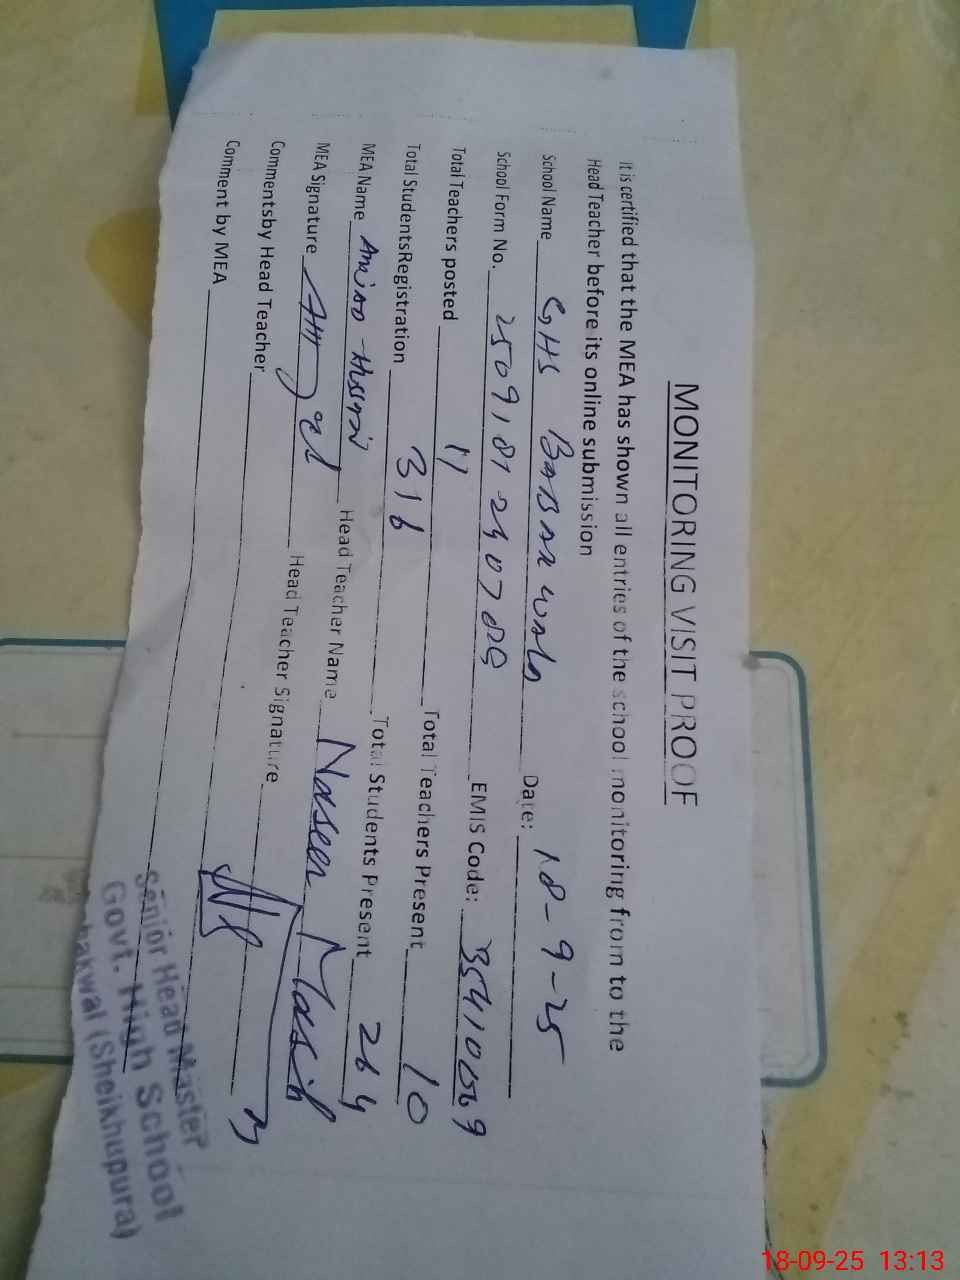 MONITORING VISIT PROOF
It is certified that the MEA has shown all entries of the school monitoring from to the
Head Teacher before its online submission
School Name GHS Date: 18-9-25
School Form No. EMIS Code:
Total Teachers posted 11 Total Teachers Present 10
Total StudentsRegistration 316 Total Students Present 264
MEA Name Head Teacher Name Naseem Masih
MEA Signature Head Teacher Signature
Commentsby Head Teacher
Comment by MEA
Senior Head Master
Govt. High School
(Sheikhupura)
18-09-25 13:13